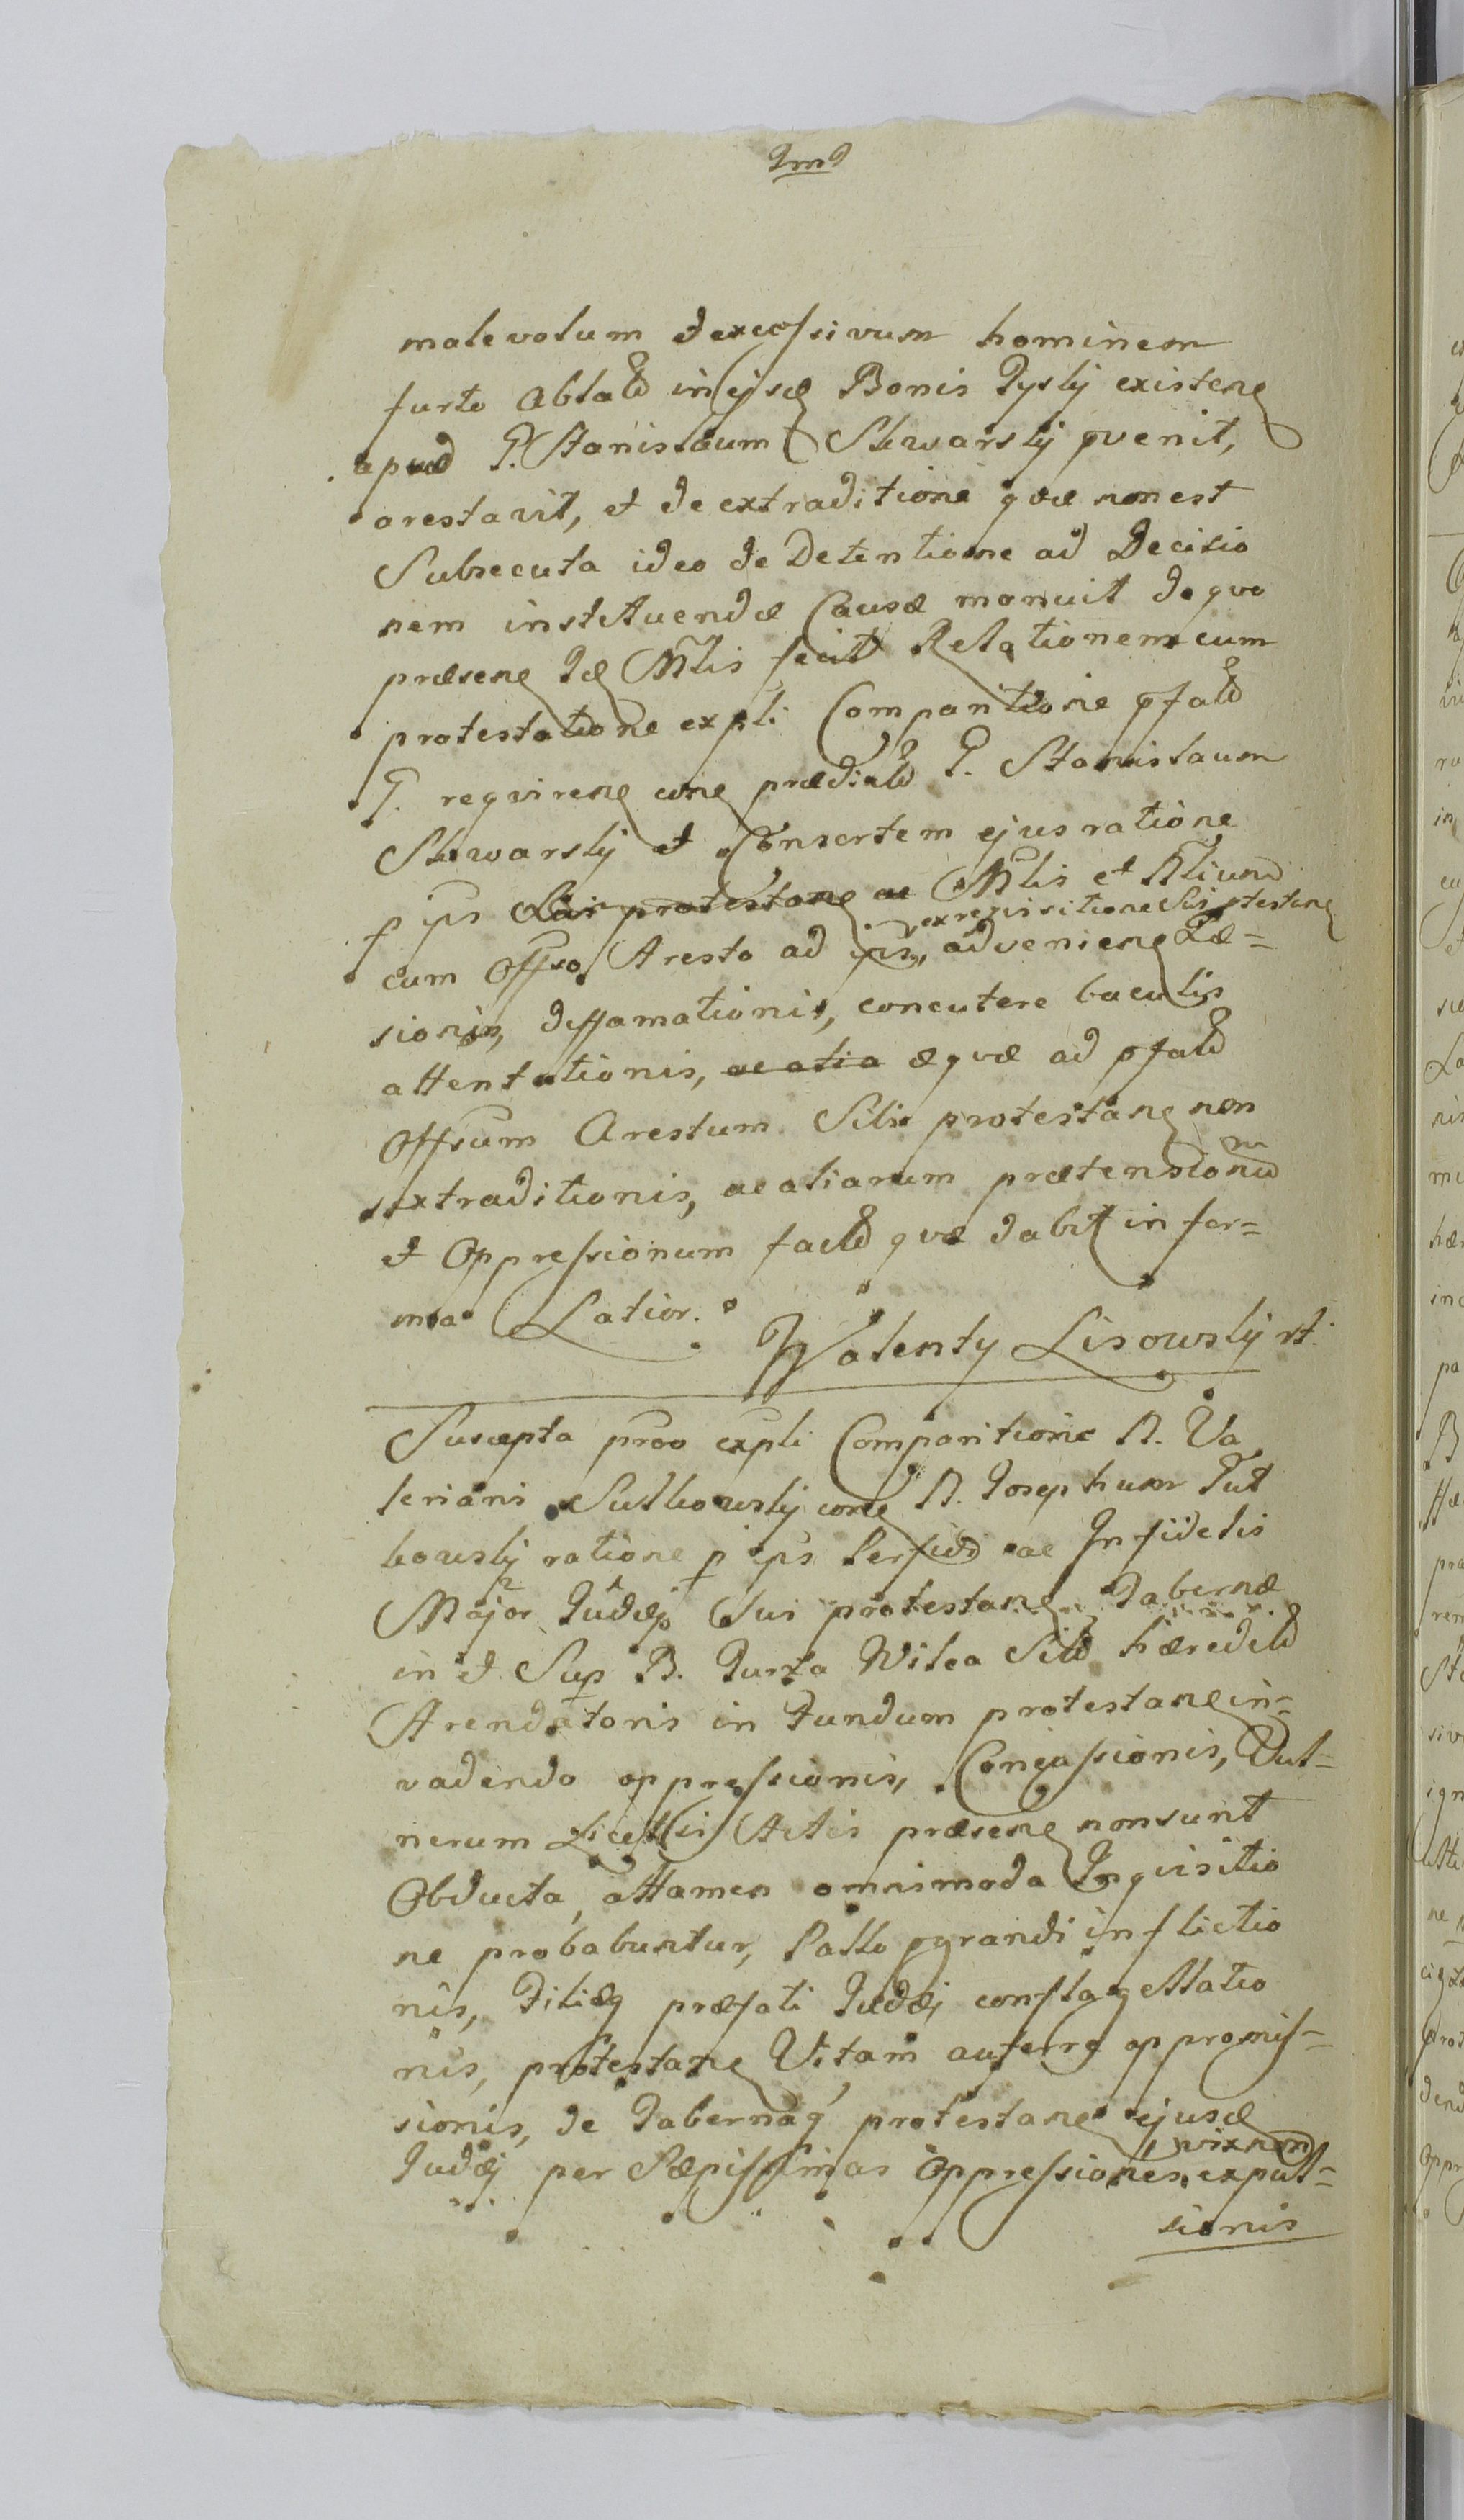 malevolum et excessivum hominem
furto ablat in ejusd Bonis Pysky existen
apud P. Stanislaum Skwarsky pvenit,
arestavit, et de extraditione quæ non est
Subsecuta ideo de Detentione ad Decisio
nem instituendæ Causæ monuit de quo
præsen Id Mtlis fecit Relationem cum
protestatione expli Comparitione pfat
P. requiren con prædict P. Stanislaum
Skwarsky et Consortem ejus ratione
p ips Sui protestan ac Mtlis et Aliund
ex requisitione Sui ptestan
cum Offso Aresto ad ips, advenien Læ=
sionis, diffamationis, concutere baculis
attentationis, ac alia æquæ ad pfat
Offsum Arestum Sibi protestan non
extraditionis, ac aliarum prætensionum
et Oppressionum fact quæ dabit in for=
ma Latior.
Walenty Lisowsky
Suscepta expli Comparitione N. Va
leriani Sutkowsky con N. Josephum Tut
kowsky ratione p ips Perfid ac Infidelis
Major Judæj Sui protestan Tabernæ
in et Sup B. Jurta Wilca Sibi hæredit
Arendatoris in Fundum protestan in=
vadendo oppressionis, Concussionis, Vul=
nerum Licet in Actis præsen non sunt
Obducta, attamen omnimoda Inquisitio
ne probabuntur, Pallo pgrandi inflictio
nis, Filiæq præfati Judæj conflagellatio
nis, protestan Vitam auferre appromis=
sionis, de Tabernaq protestan ejusd
vix non
Judæj per Sæpissimas Oppressiones expul=
sionis